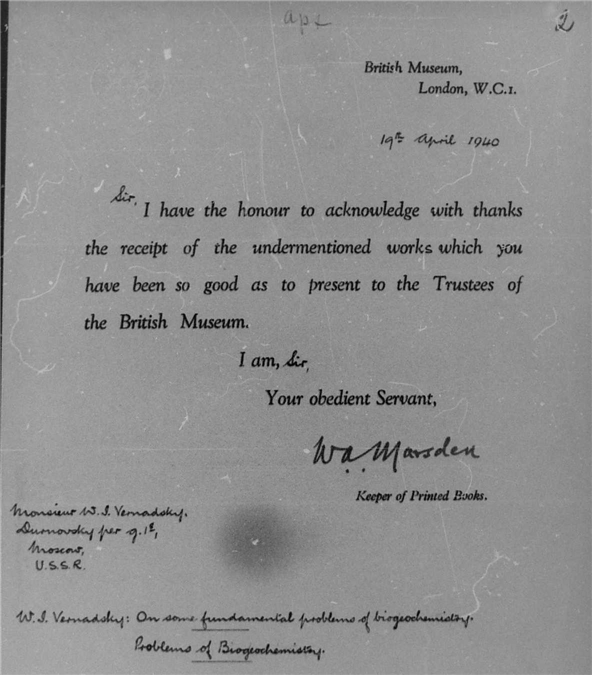 2
British Museum,
London, W.C.1.
19th April 1940
Sir,
I have the honour to acknowledge with thanks
the receipt of the undermentioned works which you
have been so good as to present to the Trustees of
the British Museum.
I am, Sir,
Your obedient Servant,
W.A. Marsden
Keeper of Printed Books.
Monsieur W. I. Vernadsky.
Durnovsky per 9.
Moscow,
U.S.S.R.
W. I. Vernadsky: On some fundamental problems of biogeochemistry.
Problems of Biogeochemistry.